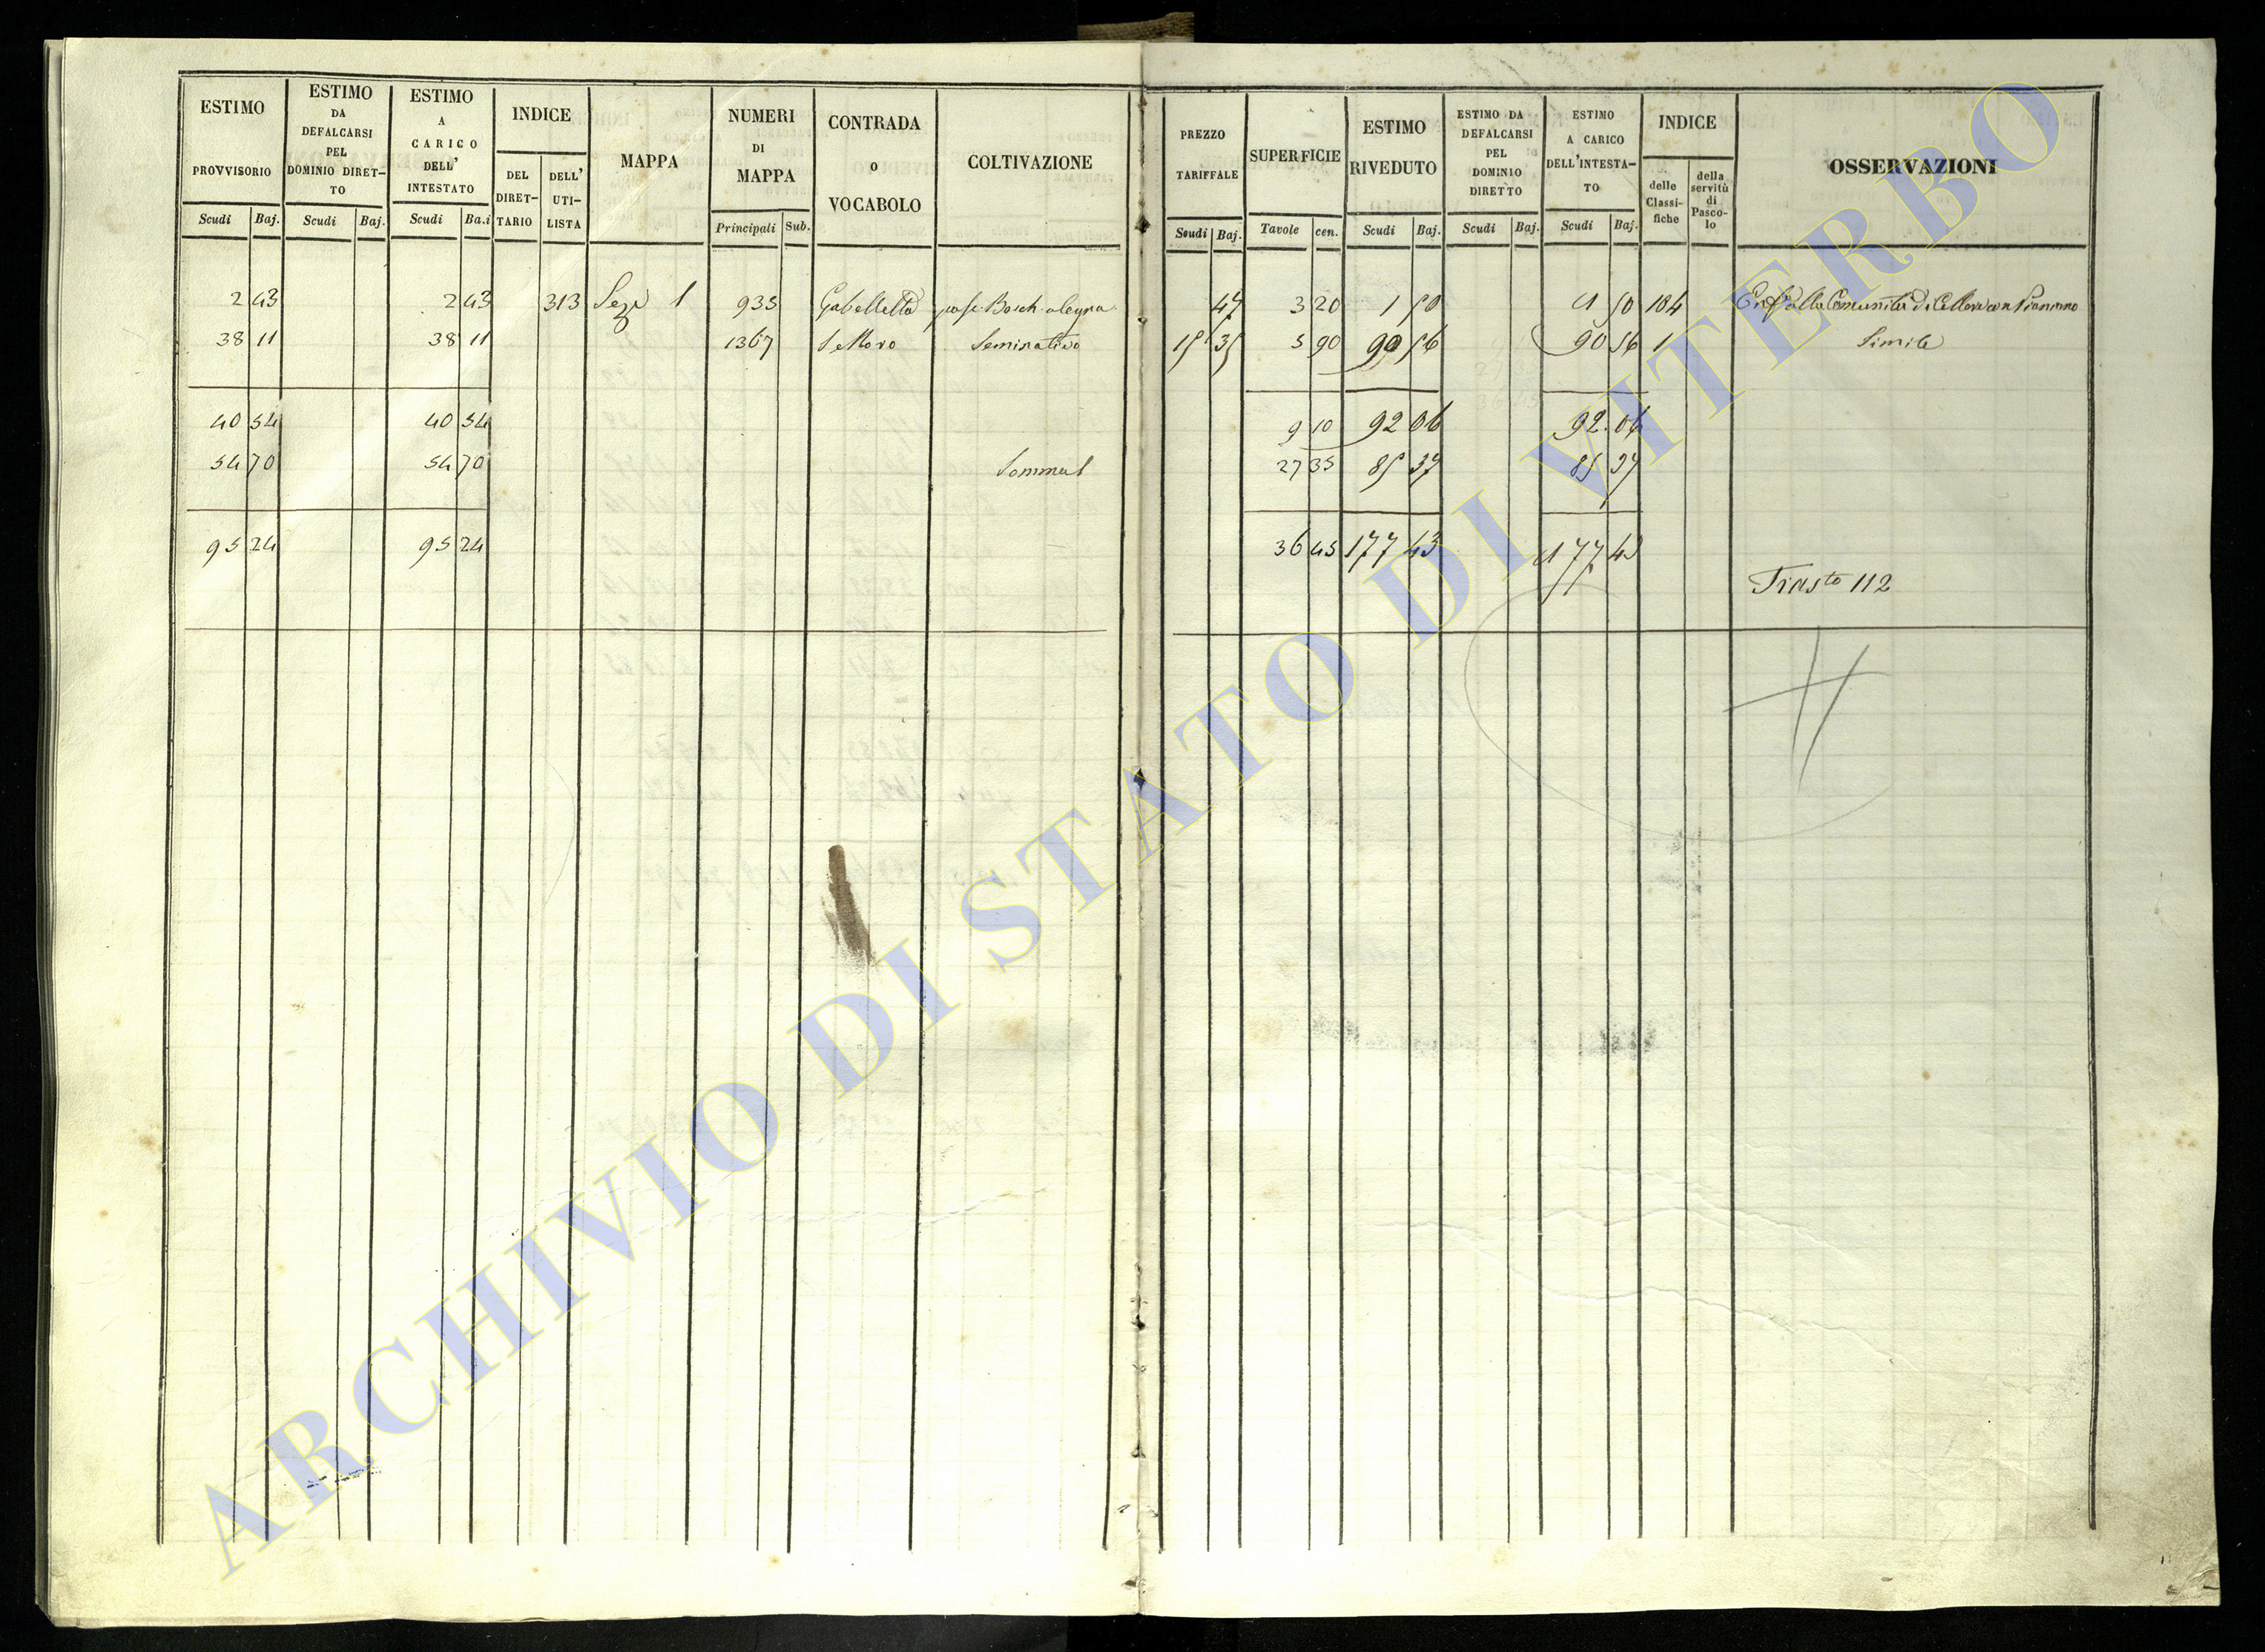 ESTIMO PROVVISORIO Scudi Baj.
ESTIMO DA DEFALCARSI PEL DOMINIO DIRET-TO Scudi Baj.
ESTIMO A CARICO DELL' INTESTATO Scudi Ba.i
INDICE DEL DIRET-TARIO DELL' UTI-LISTA
MAPPA
NUMERI DI MAPPA Principali Sub.
CONTRADA o VOCABOLO
COLTIVAZIONE
PREZZO TARIFFALE Scudi Baj.
SUPERFICIE Tavole cen.
ESTIMO RIVEDUTO Scudi Baj.
ESTIMO DA DEFALCARSI PEL DOMINIO DIRETTO Scudi Baj.
ESTIMO A CARICO DELL'INTESTA-TO Scudi Baj.
INDICE delle Classi-fiche della servitù di Pasco-lo
OSSERVAZIONI
2 43 2 43 313 Sezⁿ 1 935 Gabelletta 47 3 20 1 50 1 50 184 Comunità di Cellere
38 11 38 11 1367 Seminativo 15 35 5 90 90 56 90 56 1 Simile
40 54 40 54 9 10 92 06 92 06
54 70 54 70 Somma 27 35 85 37 85 37
95 24 95 24 36 45 177 43 177 43
112
ARCHIVIO DI STATO DI VITERBO